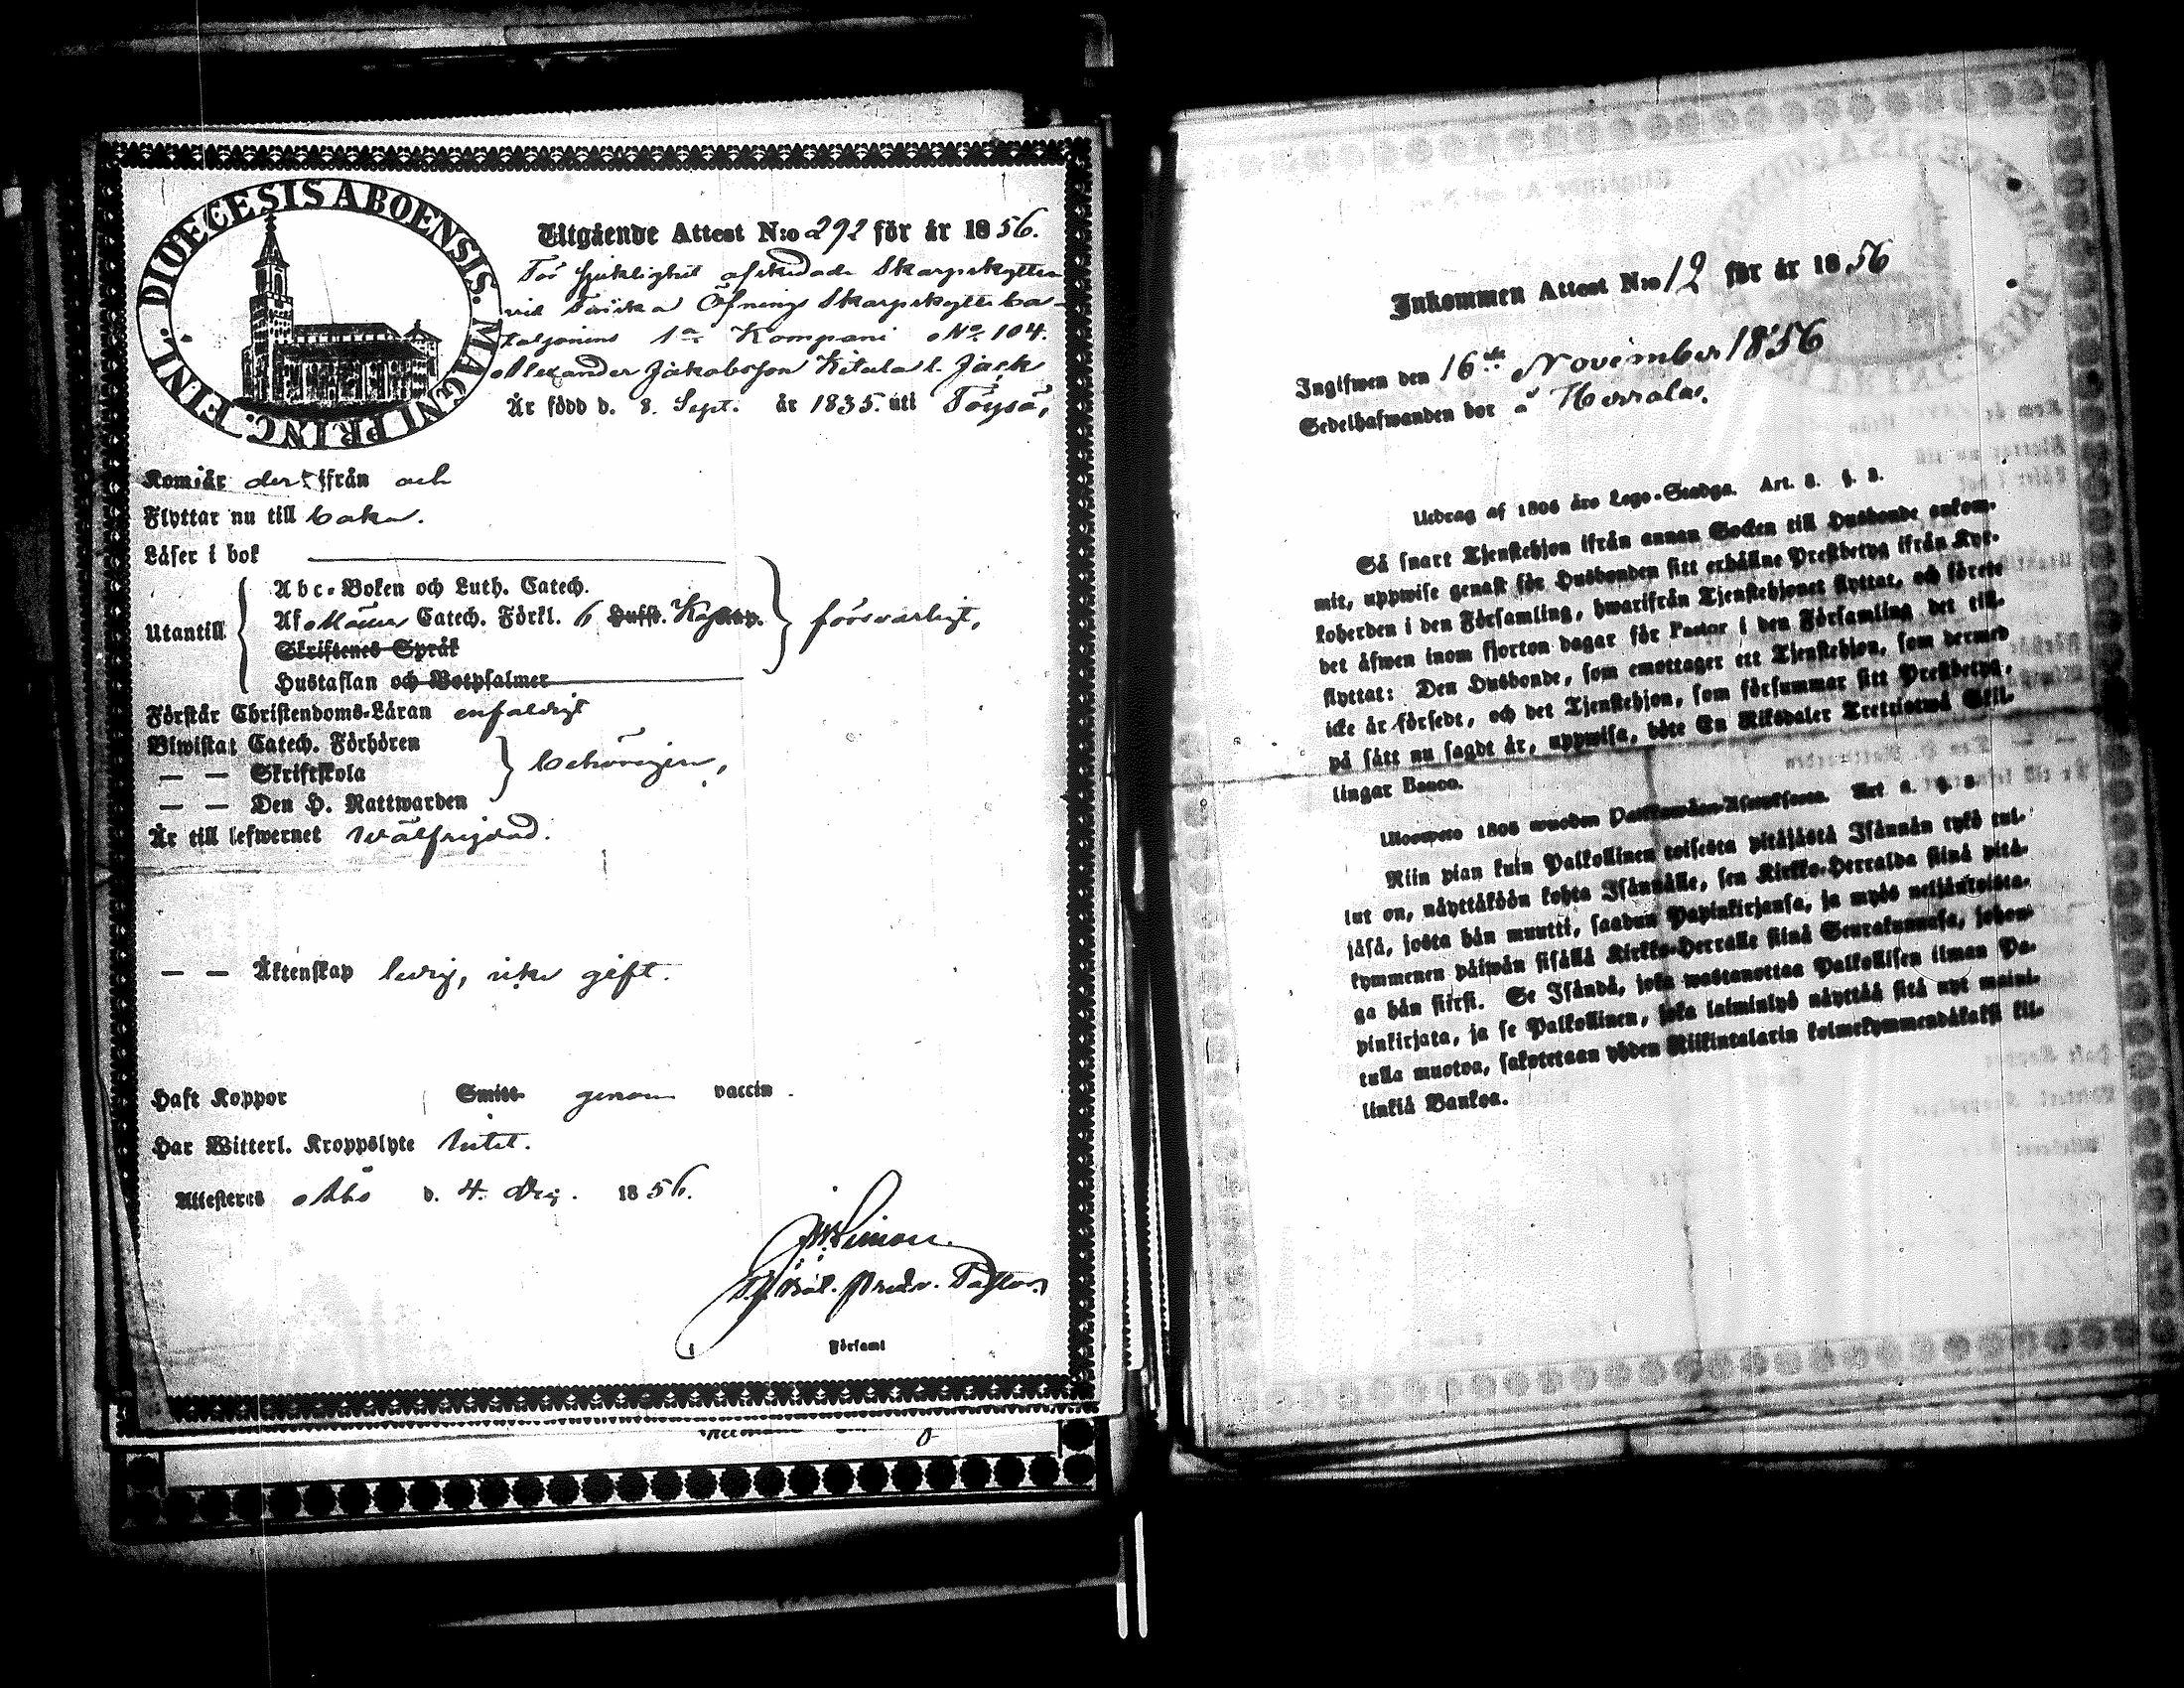 DIOECESIS ABOENSIS. MAGNI PRINC. FINL.
Utgående Attest N:o 292 för år 1856.
För sjuklighet afskedade Skarpskytten
vid Finska Öfnings Skarpskytte ba-
taljonens 1a Kompani No 104.
Alexander Jakobsson Kitula l. Jack
Är född d. 8. Sept. år 1835. uti Töysä,
Kom år der ifrån och
Flyttar nu till baka.
Läser i bok
Utantill
Abc-Boken och Luth. Catech.
Af Catech. Förkl. 6
Skriftenes Språk
Hustaflan och Botpsalmer
försvarligt,
Förstår Christendoms-Läran enfaldigt
Biwistat Catech. Förhören
— — Skriftskola
— — Den H. Nattwarden
behörigen,
Är till lefwernet wälfrejdad.
— — Äktenskap ledig, icke gift.
Haft Koppor Smitt genom vaccin.
Har Witterl. Kroppslyte intet.
Attesteras Åbo d. 4. 1856.
Pastor
Församl
Inkommen Attest N:o 12 för år 1856
Ingifwen den 16de November 1856
Sedelhafwanden bor å Herrala.
Utdrag af 1805 års Lego-Stadga. Art. 3. §. 3.
Så snart Tjenstehjon ifrån annan Socken till Husbonde ankom-
mit, uppwise genast för Husbonden sitt erhållne Prestbetyg ifrån Kyr-
koherden i den Församling, hwarifrån Tjenstehjonet flyttat, och förete
det äfwen inom fjorton dagar för Pastor i den Församling det till-
flyttat: Den Husbonde, som emottager ett Tjenstehjon, som dermed
icke är försedt, och det Tjenstehjon, som försummar sitt Prestbetyg,
på sätt nu sagdt är, uppwisa, böte En Riksdaler Trettiotwå Skil-
lingar Banco.
Ulosweto 1805 wuoden Palkkawäen-Asetuksesta. Art 3. §. 3
Niin pian kuin Palkollinen toisesta pitäjästä Isännän tykö tul-
lut on, näyttäköön kohta Isännälle, sen Kirkko-Herralda siinä pitä-
jäsä, josta hän muutti, saadun Papinkirjansa, ja myös neljäntoista-
kymmenen päiwän sisällä Kirkko-Herralle siinä Seurakunnasa, johon-
ga hän siirsi. Se Isändä, joka wastanottaa Palkollisen ilman Pa-
pinkirjata, ja se Palkollinen, joka laiminlyö näyttää sitä nyt maini-
tulla muotoa, sakotetaan yhden Riikintalarin kolmekymmendäkaksi kil-
linkiä Bankoa.